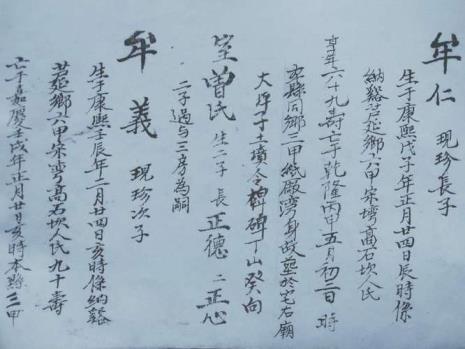 牟仁 現珍長子
生于康熙戊子年正月廿四日辰時係
納谿君莚鄉六甲宋塆高石坎人民
享年六十九壽亡于乾隆丙申五月初三日 時
縣同鄉二甲紙廠湾身故葬於宅石廟
大坪子土墳合碑丁山癸向
室曾氏 生二子 長 正德 二 正心
二子過与三房為嗣
牟義 現珍次子
生于康熙壬辰年二月廿四日亥時係納谿
莚鄉六甲宋塆高石坎人民九十壽
亡于嘉慶壬戌年正月廿日亥時本縣三甲